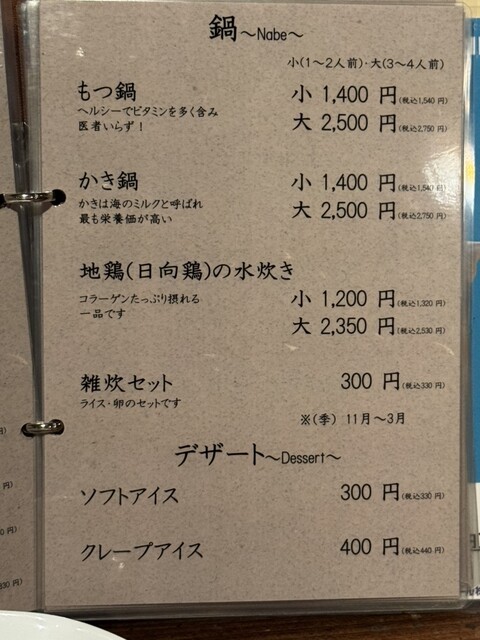 鍋～Nabe～
小(1～2人前)・大(3～4人前)
もつ鍋 小 1,400 円(税込1,540 円)
ヘルシーでビタミンを多く含み
医者いらず！ 大 2,500 円(税込2,750 円)
かき鍋 小 1,400 円(税込1,540 円)
かきは海のミルクと呼ばれ
最も栄養価が高い 大 2,500 円(税込2,750 円)
地鶏(日向鶏)の水炊き
コラーゲンたっぷり摂れる 小 1,200 円(税込1,320 円)
一品です 大 2,350 円(税込2,530 円)
雑炊セット 300 円(税込330 円)
ライス・卵のセットです
※(季) 11月～3月
デザート～Dessert～
ソフトアイス 300 円(税込330 円)
クレープアイス 400 円(税込440 円)